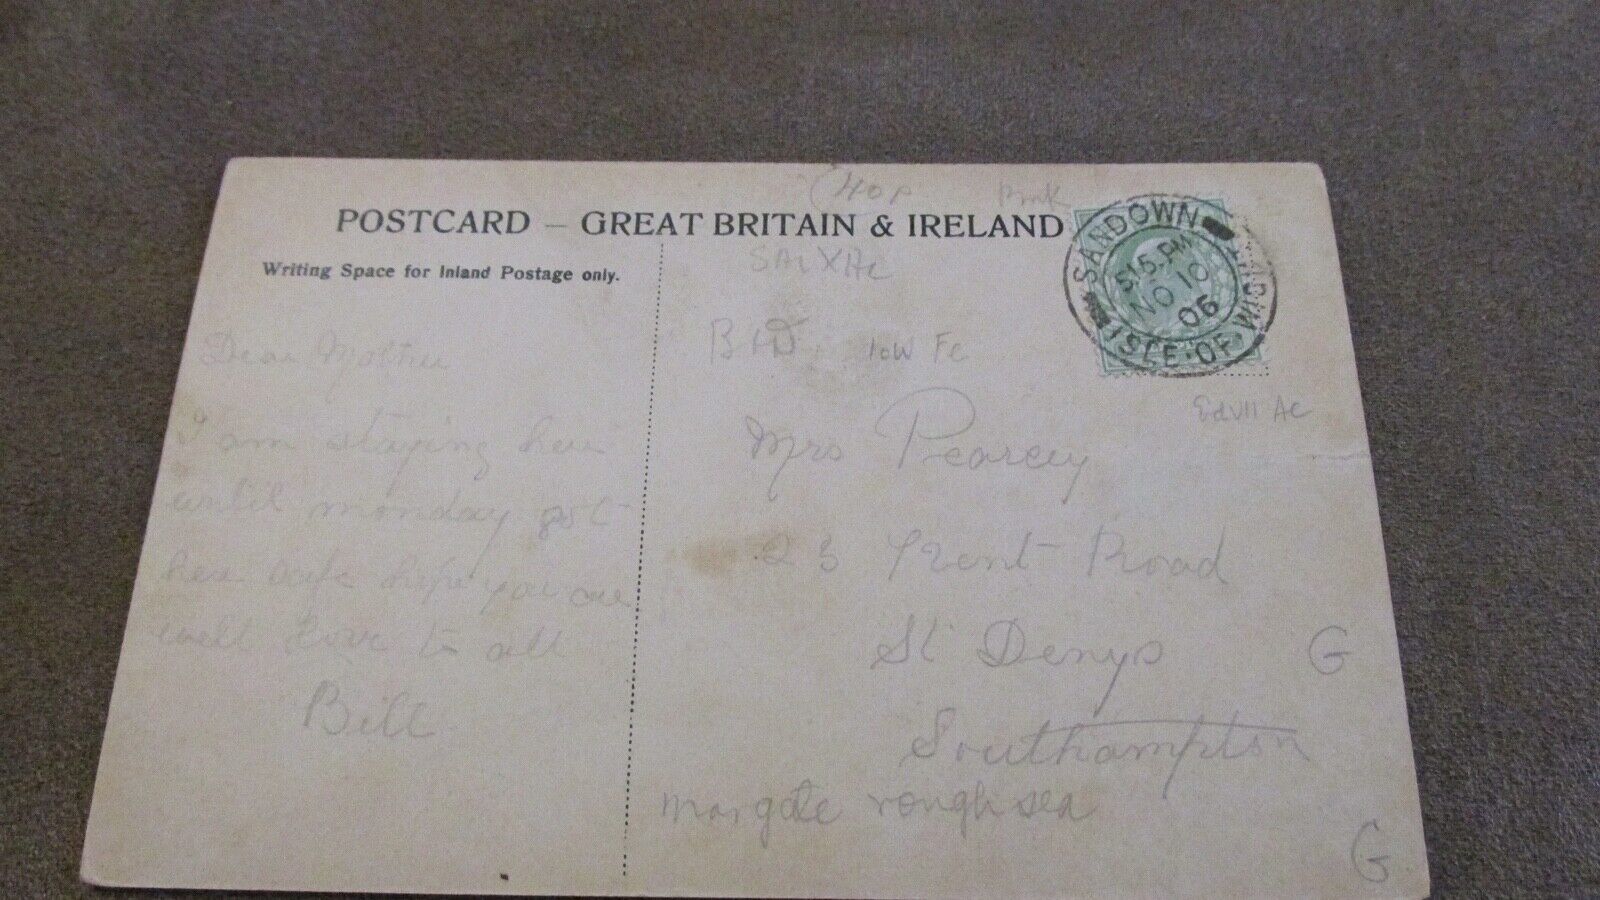 40p
Pink
POSTCARD – GREAT BRITAIN & IRELAND
Writing Space for Inland Postage only.
SANDOWN
5 15. PM
NO 10
06
ISLE · OF · WIGHT
10W Fc
EdVII Ac
Dear Mother
I am staying here
until monday got
here safe hope you are
well Love to all
Bill
Mrs Pearcey
23 Trent Road
St Denys
Southampton
G
margate rough sea
G